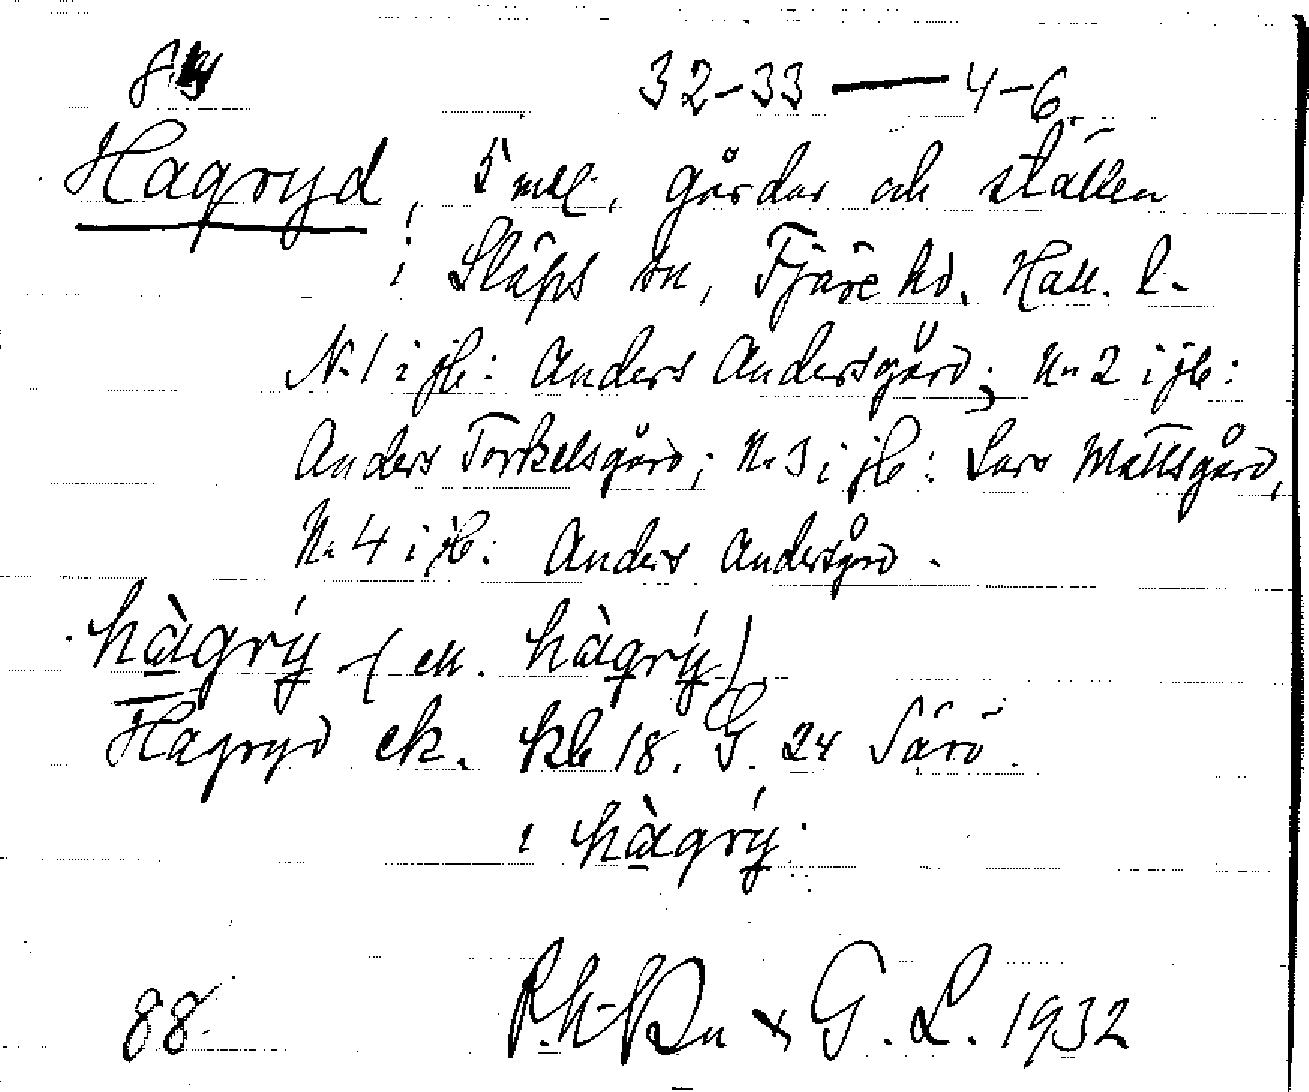 32-33 — 4-6
Hagryd, 5 mtl, gårdar och ställen
i Släps sn, Fjäre hd, Hall. l.
N. 1 i jb: Anders Andersgård; N. 2 i jb:
Anders Torkelsgård; N. 3 i jb: Lars Mattsgård,
N. 4 i jb: Anders Andersgård.
hàgrý (ek. hàgrý)
Hagryd ek. kbl 18. G. 24 Särö.
i hàgrý.
88. G. L. 1932